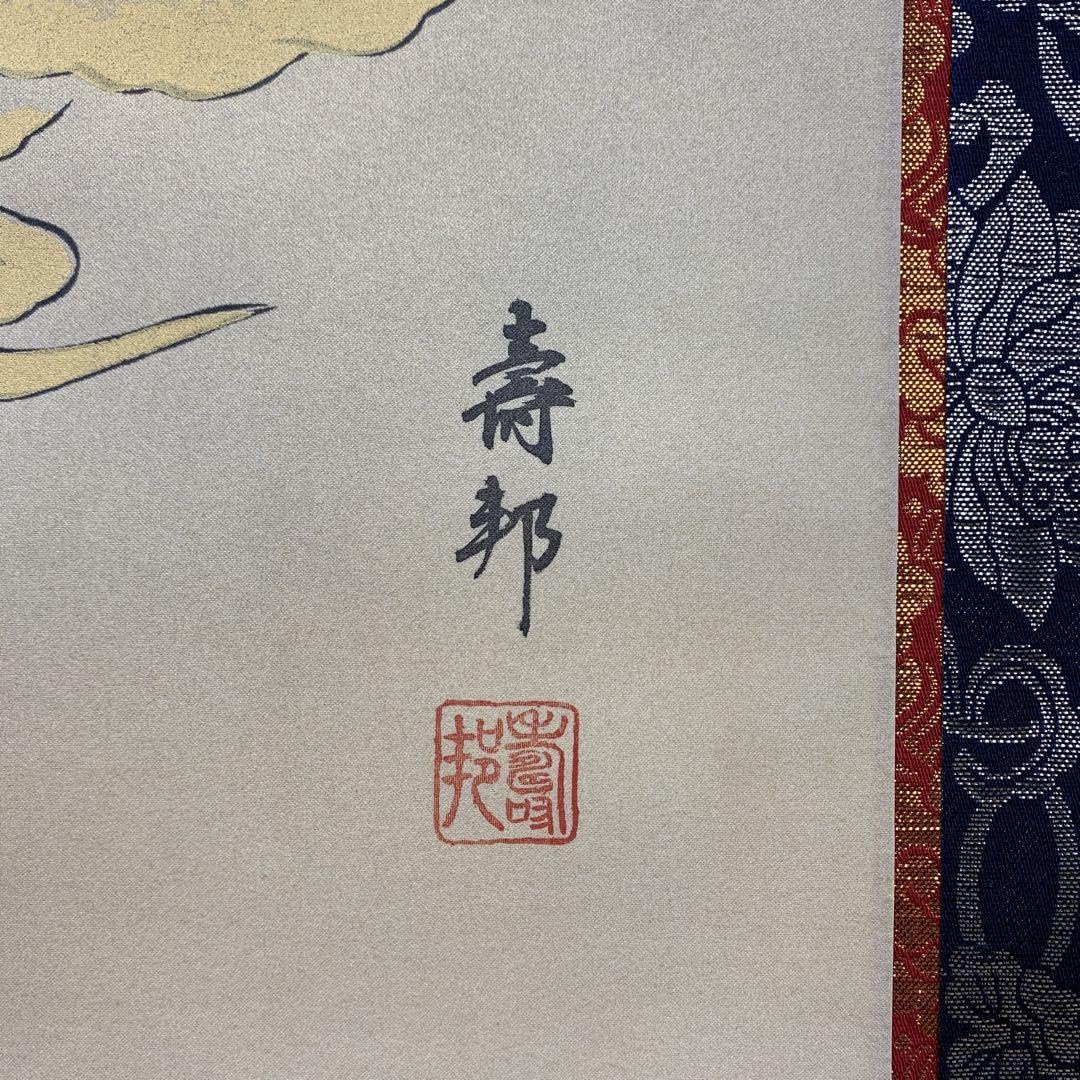 壽邦
壽邦